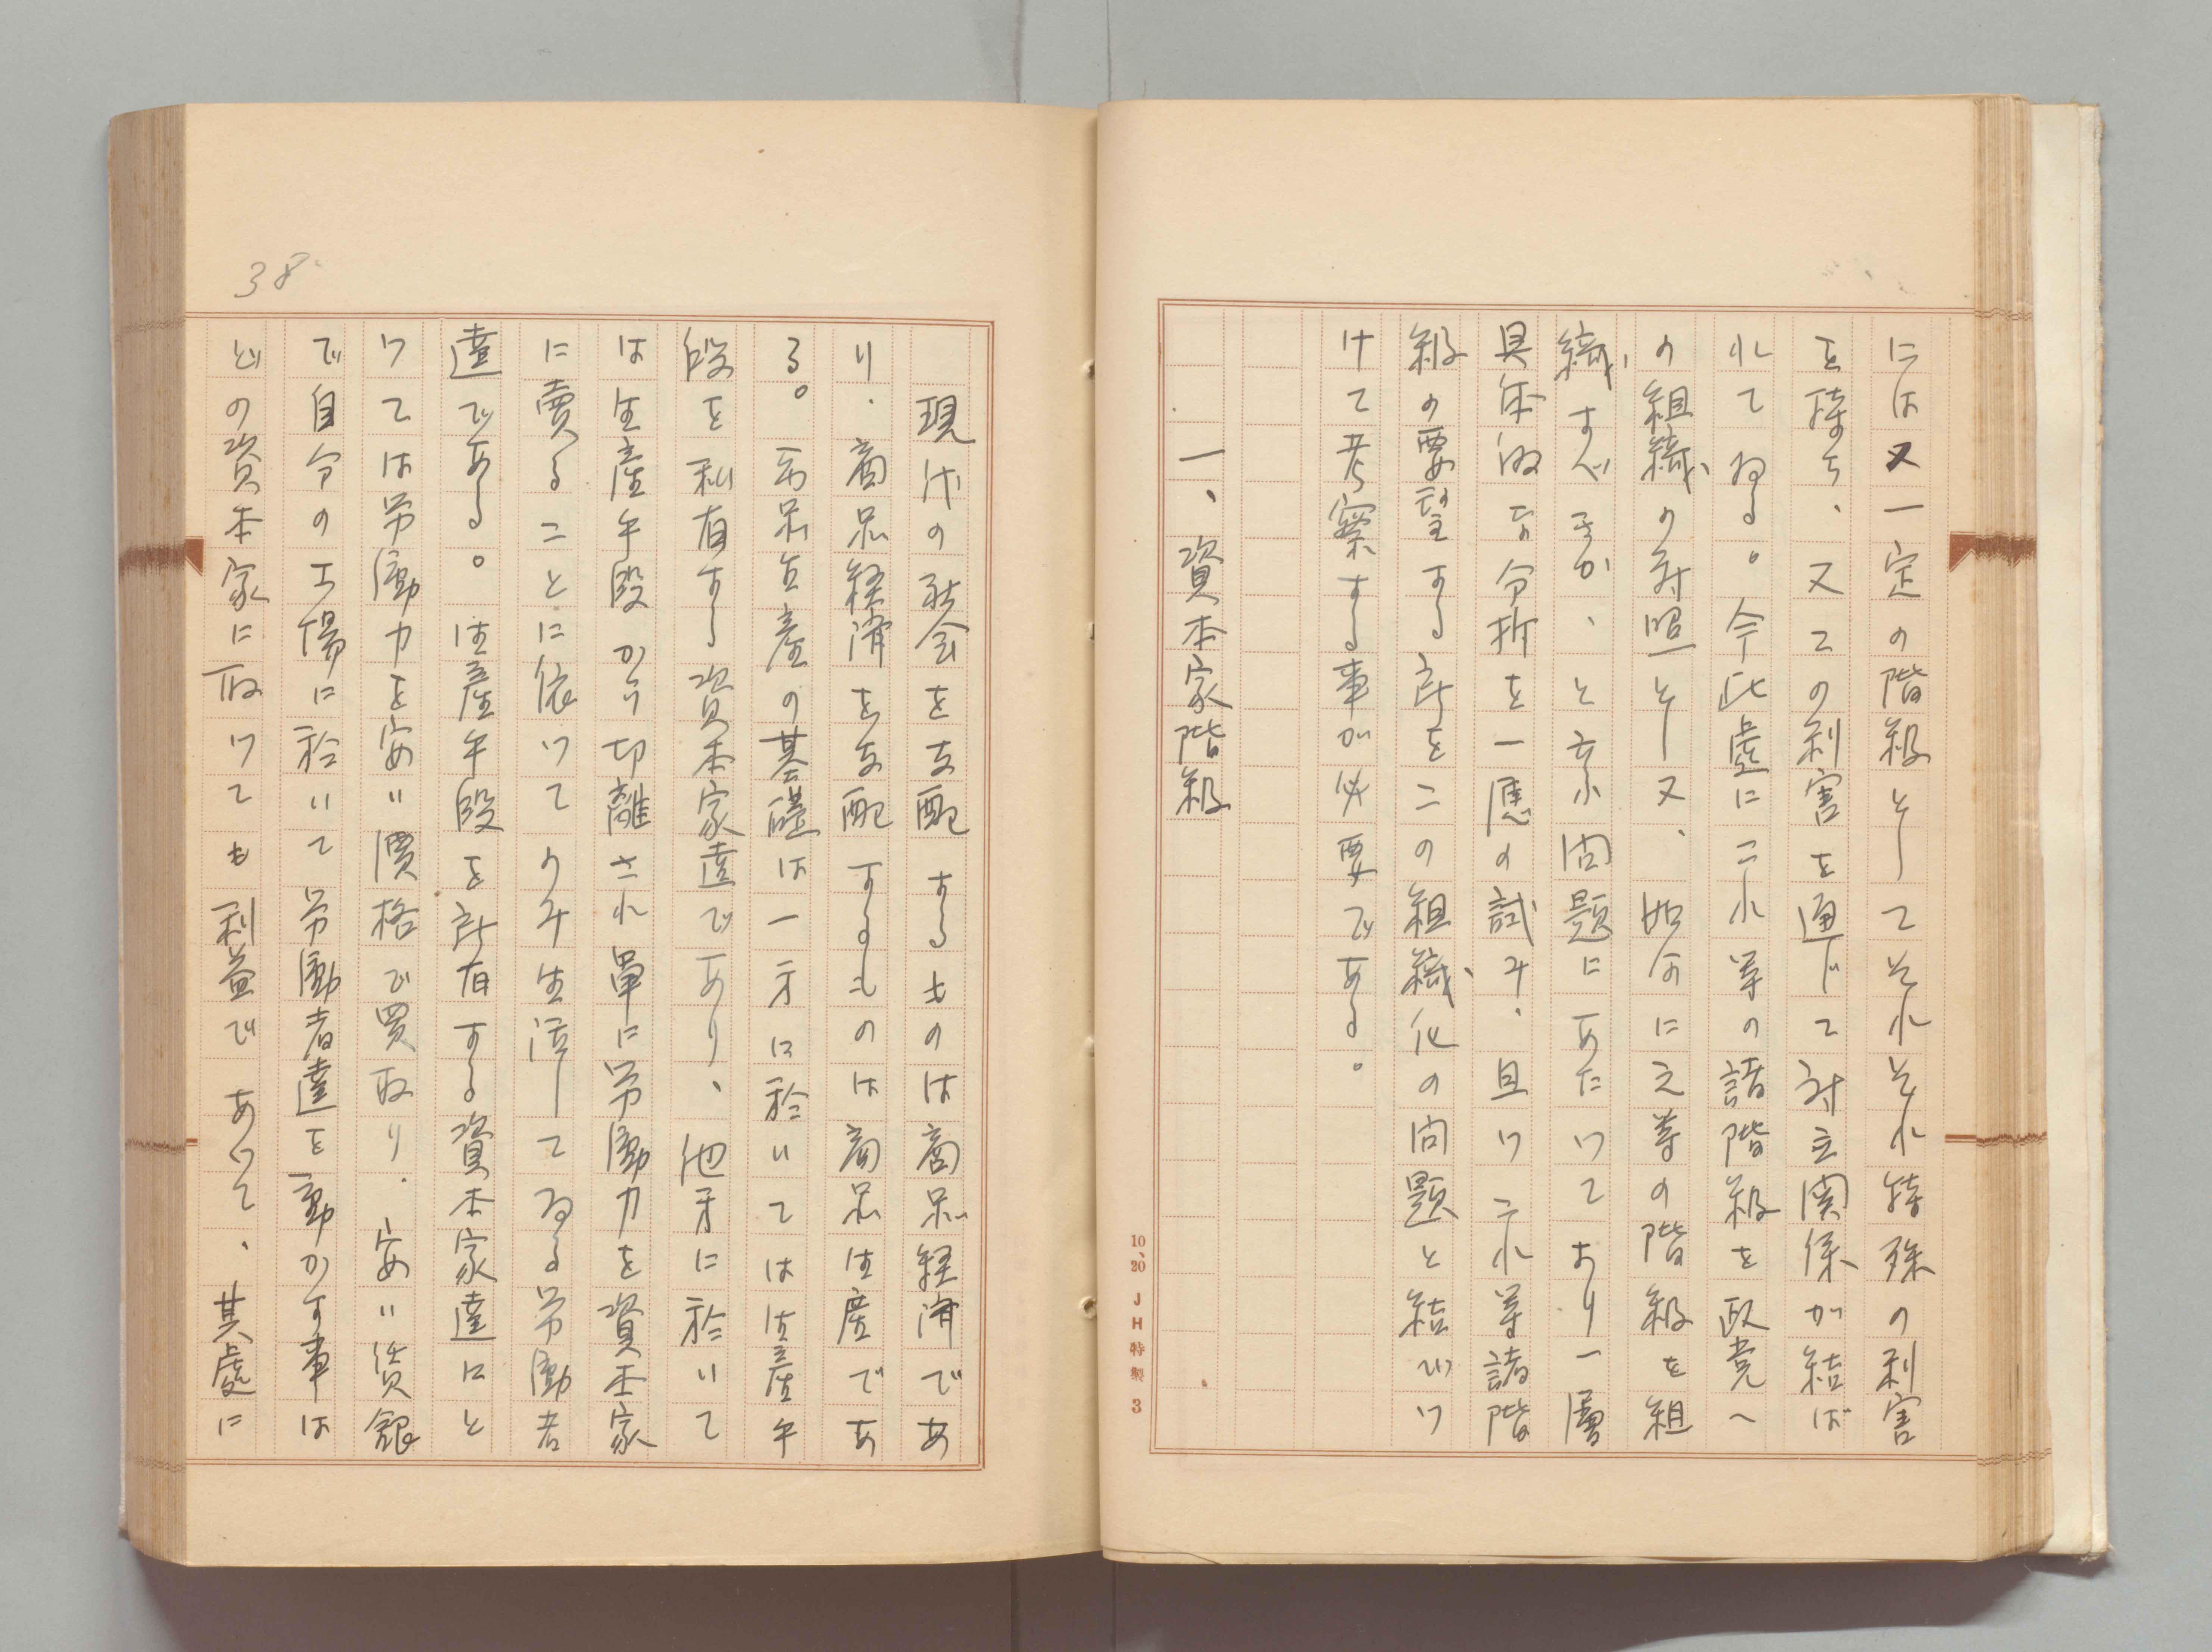 には又一定の階級としてそれぞれ特殊の利害
を持ち、又この利害を通じて対立関係が結ば
れてゐる。今此處にこれ等の諸階級を政党へ
の組織の対照とし又、如何に之等の階級を組
織すべきか、と云ふ問題にあたつており一層
具体的な分析を一應の試み、且つこれ等諸階
級の要望する所をこの組織化の問題と結びつ
けて考察する事が必要である。
一、資本家階級
10、20 JH特製 3
38
現代の社会を支配するものは商品経済であ
り、商品経済を支配するものは商品生産であ
る。商品生産の基礎は一方に於いては生産手
段を私有する資本家達であり、他方に於いて
は生産手段から切離され単に労働力を資本家
に賣ることに依つてのみ生活してゐる労働者
達である。生産手段を所有する資本家達にと
つては労働力を安い價格で買取り、安い賃銀
で自分の工場に於いて労働者達を動かす事は
どの資本家に取つても利益であつて、其處に